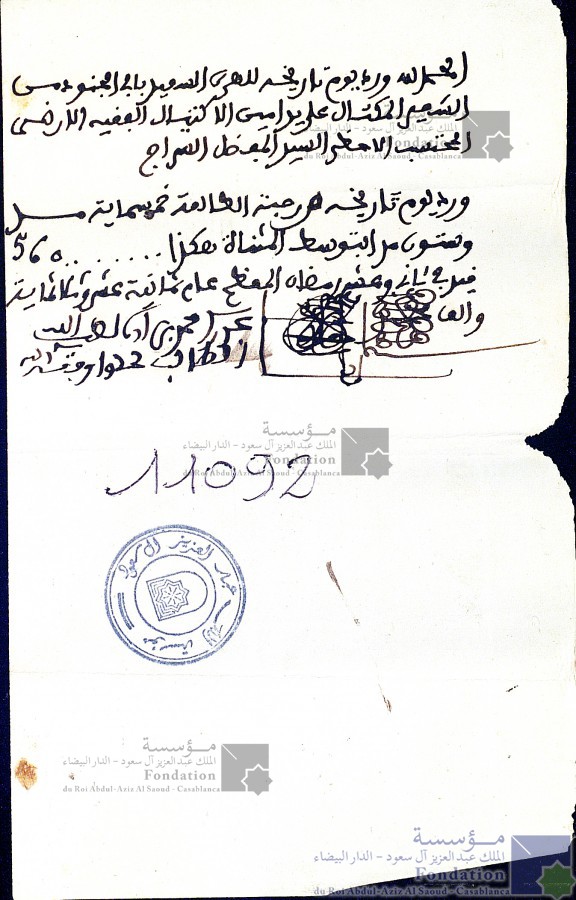 الحمد لله ورد يوم تاريخه للهري السعيد بباب الجنود من
الشعير المكتال على يد امين الاكتيال الفقيه الارضى
المحتسب الاحظى السيد المفضل السراج
ورد يوم تاريخه من جهة الطالعة خمسماية
وستون مدا بتوسط المثقال هكذا . . . . . . . . 560
قيد في ثاني وعشر رمضان المعظم عام ثمانية عشر وثلاثماية
والف
الله
11092
عبد العزيز آل سعود
مؤسسة
مؤسسة
الملك عبد العزيز آل سعود - الدار البيضاء
Fondation
du Roi Abdul-Aziz Al Saoud - Casablanca
مؤسسة
الملك عبد العزيز آل سعود - الدار البيضاء
Fondation
du Roi Abdul-Aziz Al Saoud - Casablanca
مؤسسة
الملك عبد العزيز آل سعود - الدار البيضاء
Fondation
du Roi Abdul-Aziz Al Saoud - Casablanca
الملك عبد العزيز آل سعود - الدار البيضاء
du Roi Abdul-Aziz Al Saoud - Casablanca